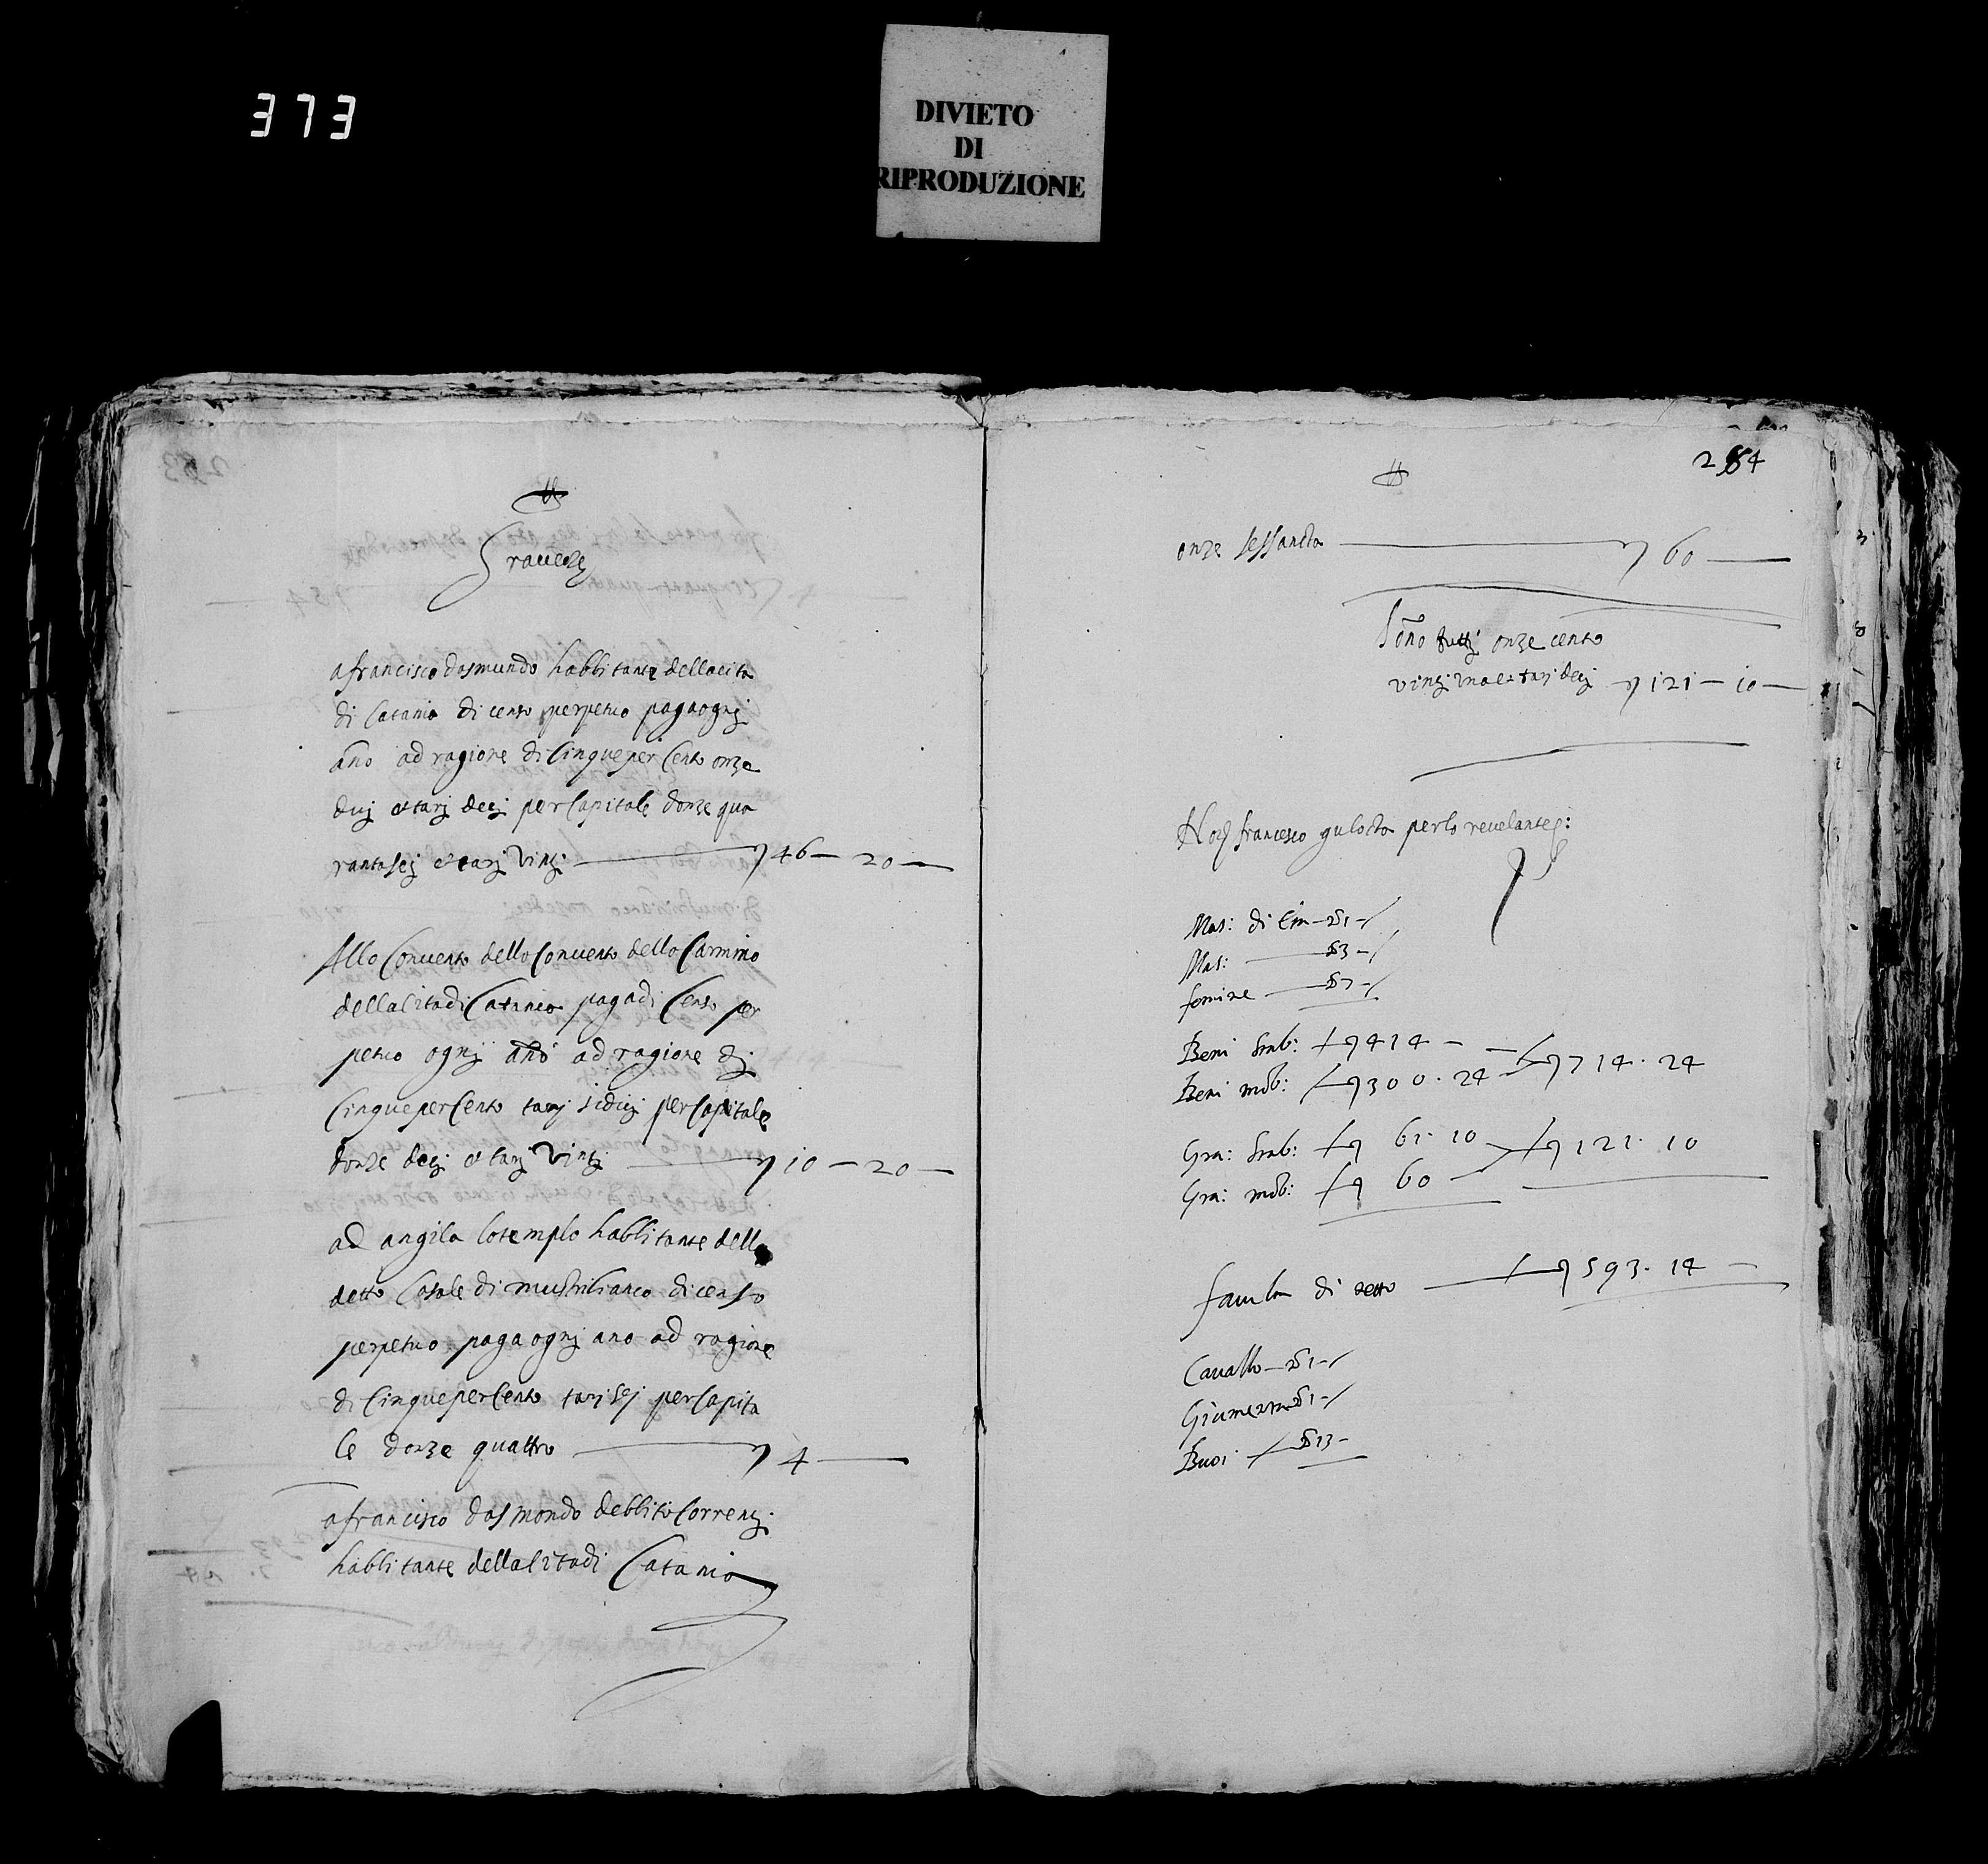 373
DIVIETO
DI
RIPRODUZIONE
Gravezzi
a francisco dosmundo habbitante della cita
di Catania di censo perpetuo paga ognj
año ad ragione di Cinque per Cento onze
duj et tarj decj per Capitale donze qua
rantasej et tarj vintj 46 — 20 —
Allo Convento dello Convento dello Carmino
della Cita di Catania paga di Censo per
petuo ognj año ad ragione dj
Cinque per Cento tarj sidicj per Capitale
donze decj et tarj vintj 10 — 20 —
ad angila lo templo habbitante dello
detto Casale di mustribianco di censo
perpetuo paga ognj ano ad ragione
di Cinque per Cento tarj sej per Capita
le donze quattro 4 —
a francisco dosmondo debbito Correntj
habbitante della Cita di Catania
284
onze sessancta 60 —
Sono tuttj onze cento
vintj una et tarj decj 121 — 10 —
francesco gulocta per lo revelante:
Mas: di Cin — 1 —
Mas: — 3 —
femine — 7 —
Beni stab: 414 — — 714 . 24
Beni mob: 300 . 24
Gra: stab: 61 . 10 121 . 10
Gra: mob: 60
faculta di netto 593 . 14 —
Cavallo — 1 —
Giumenta 1 —
Buoi 13 —